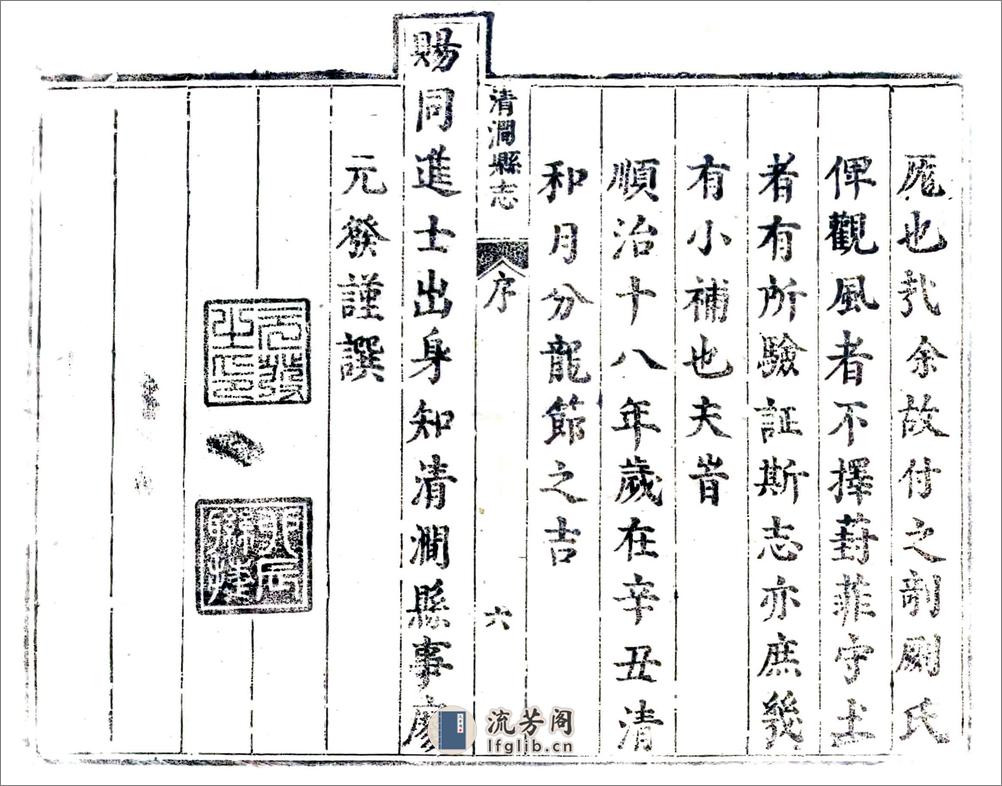 厖也哉余故付之剞劂氏
俾觀風者不擇葑菲守土
者有所驗証斯志亦庶幾
有小補也夫峕
順治十八年歲在辛丑清
和月分龍節之吉
清澗縣志
序
六
賜同進士出身知清澗縣事廖
元發謹譔
元發
之印
流芳阁
lfglib.cn